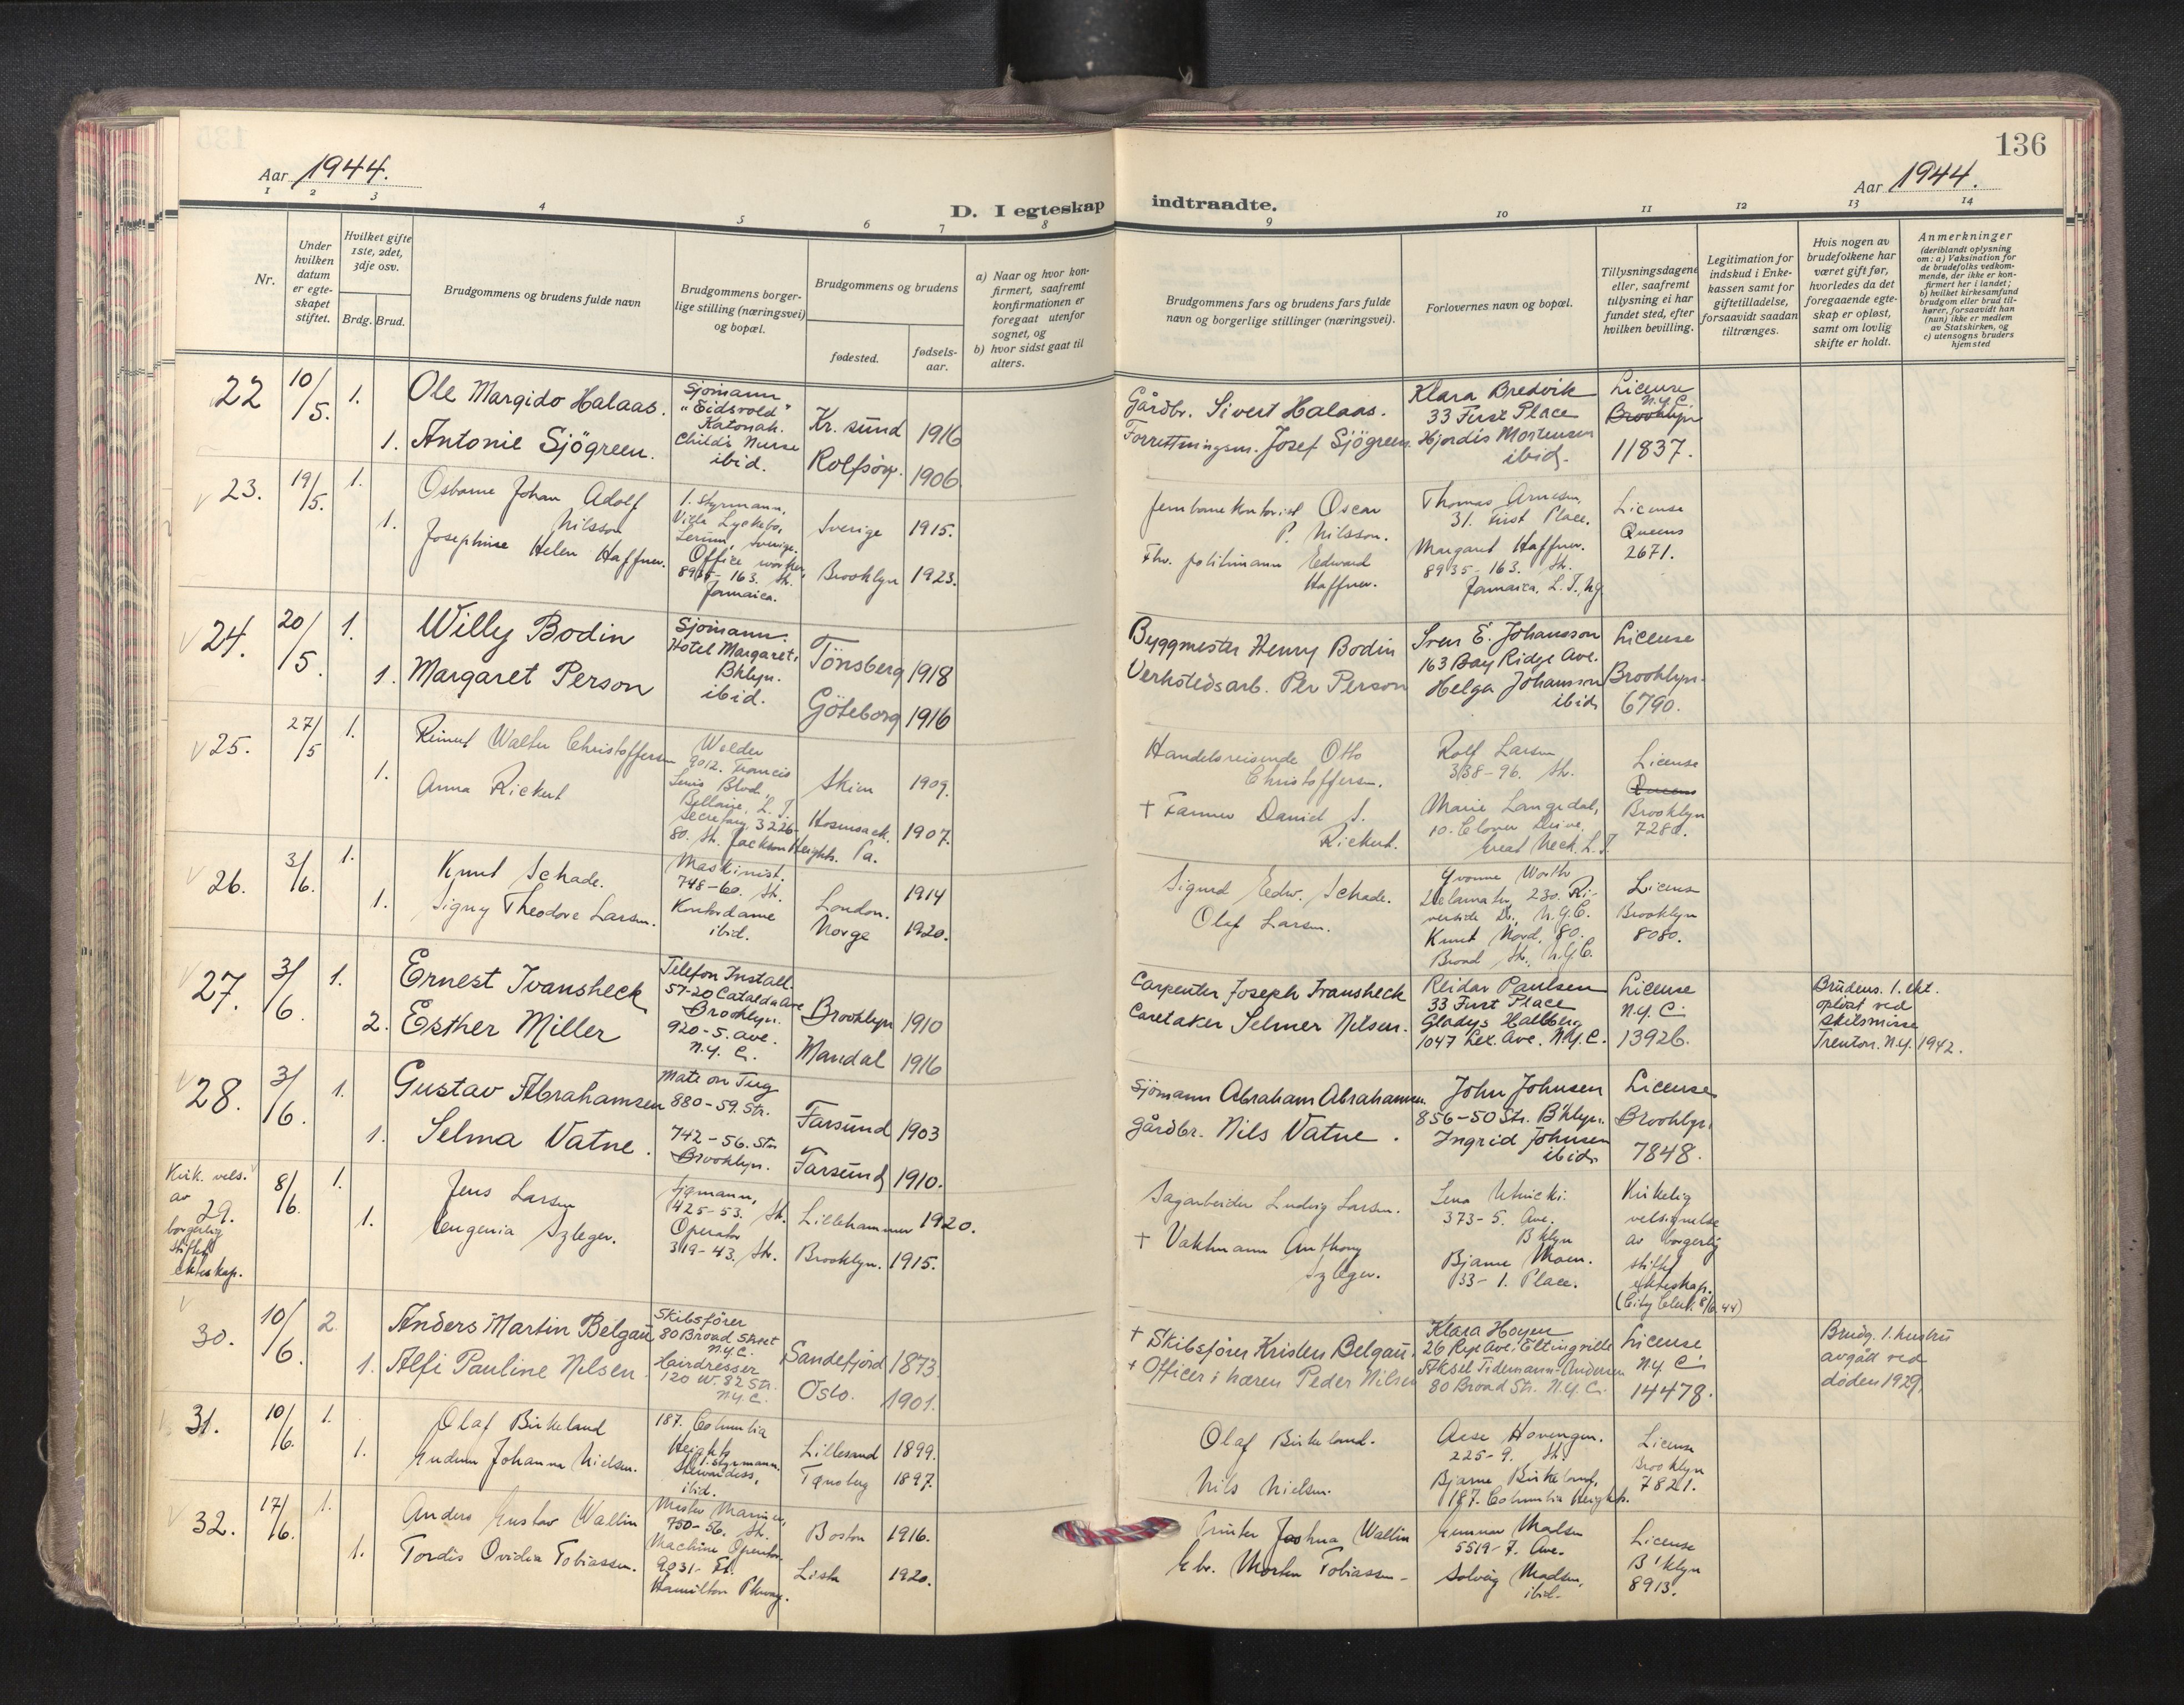 136
Aar 1944.
Aar 1944.
D. I egteskap indtraadte.
1 2 3 4 5 6 7 8 9 10 11 12 13 14
Nr.
Under hvilken datum er egteskapet stiftet.
Hvilket gifte 1ste, 2det, 3dje osv.
Brdg. Brud.
Brudgommens og brudens fulde navn
Brudgommens borgerlige stilling (næringsvei) og bopæl.
Brudgommens og brudens
fødested.
fødselsaar.
a) Naar og hvor konfirmert, saafremt konfirmationen er foregaat utenfor sognet, og
b) hvor sidst gaat til alters.
Brudgommens fars og brudens fars fulde navn og borgerlige stillinger (næringsvei).
Forlovernes navn og bopæl.
Tillysningsdagene eller, saafremt tillysning ei har fundet sted, efter hvilken bevilling.
Legitimation for indskud i Enkekassen samt for giftetilladelse, forsaavidt saadan tiltrænges.
Hvis nogen av brudefolkene har været gift før, hvorledes da det foregaaende egteskap er opløst, samt om lovlig skifte er holdt.
Anmerkninger
(deriblandt oplysning om: a) Vaksination for de brudefolks vedkommende, der ikke er konfirmert her i landet; b) hvilket kirkesamfund brudgom eller brud tilhører, forsaavidt han (hun) ikke er medlem av Statskirken, og c) utensogns bruders hjemsted
22 10/5. 1. Ole Margido Halaas. Sjømann "Eidsvold" Katonah. Kr. sund 1916
1. Antonie Sjögreen. Child's Nurse ibid. Rolfsøy. 1906
Gårdbr. Sivert Halaas.
Forretningsm. Josef Sjögreen.
Klara Bredvik
33 First Place
Hjordis Mortensen
ibid.
License
N.Y.C.
Brooklyn
11837.
23. 19/5. 1. Osborne Johan Adolf Nilsson 1. styrmann, Villa Lyckebo, Lerum, Sverige. Sverige 1915.
1. Josephine Helen Haffner. Office worker, 8935-163. St. Jamaica. Brooklyn 1923.
Jernbanekontorist Oscar
P. Nilsson.
Fhv. politimann Edward
Haffner.
Thomas Arnesen,
31. First Place.
Margaret Haffner.
8935-163. St.
Jamaica, L.I., N.Y.
License
Queens
2671.
24. 20/5. 1. Willy Bodin Sjømann. Hotel Margaret, Bklyn. Tönsberg 1918
1. Margaret Person ibid. Göteborg 1916
Byggmester Henry Bodin
Verkstedsarb. Per Person
Sven E. Johansson
163 Bay Ridge Ave.
Helga Johansson
ibid.
License
Brooklyn.
6790.
25. 27/5 1. Reinert Walter Christoffersen Welder 9012. Francis Lewis Blvd., Bellaire, L.I. Skien 1909.
1. Anna Rickert Secretary, 3226-80. St. Jackson Heights. Hosensack. Pa. 1907.
Handelsreisende Otto
Christoffersen.
+ Farmer Daniel S.
Rickert.
Rolf Larsen
338-96. St.
Marie Langedal,
10. Clover Drive.
Great Neck. L.I.
License
Queens
Brooklyn
7280.
26. 3/6. 1. Knut Schade. Maskinist. 748-60. St. London. 1914
1. Signy Theodore Larsen. Kontordame ibid. Norge 1920.
Sigurd Edw. Schade.
Olaf Larsen.
Yvonne Worth
Delamater, 230. Ri-
verside Dr., N.Y.C.
Knut Nord, 80.
Broad St., N.Y.C.
License
Brooklyn
8080.
27. 3/6. 1. Ernest Ivansheck Telefon Install. 57-20 Catalda Ave Brooklyn. Brooklyn 1910
2. Esther Miller 920-5. Ave. N.Y.C. Mandal 1916
Carpenter Joseph Ivansheck
Caretaker Selmer Nilsen.
Reidar Paulsen
33 First Place
Gladys Hallberg
1047 Lex. Ave. N.Y.C.
License
N.Y.C.
13926.
Brudens. 1. ekt.
opløst ved
skilsmisse
Trenton. N.Y. 1942.
28. 3/6. 1. Gustav Abrahamsen Mate on Tug 880-59. Str. Farsund 1903
1. Selma Vatne. 742-56. Str. Brooklyn. Farsund 1910.
Sjømann Abraham Abrahamsen.
Gårdbr. Nils Vatne.
John Johnsen
856-50 Str. B'klyn.
Ingrid Johnsen
ibid.
License
Brooklyn.
7848.
Kirk. vels. av borgerlig stiftet ekteskap.
29. 8/6. 1. Jens Larsen Sjømann, 425-53. St. Lillehammer 1920.
1. Eugenia Szleger. Operator 319-43. St. Brooklyn. 1915.
Sagarbeider Ludvig Larsen.
+ Vaktmann Anthony
Szleger.
Lena Wnicki.
373-5. Ave.
Bklyn
Bjarne Moen.
33-1. Place.
Kirkelig
velsignelse
av borgerlig
stiftet
ekteskap.
(City Clerk. 8/6 44)
30. 10/6. 2. Anders Martin Belgau Skibsfører 80 Broad Street N.Y.C. Sandefjord 1873.
1. Alfi Pauline Nilsen. Hairdresser 120 W. 82 Str. N.Y.C. Oslo. 1901.
+ Skibsfører Kristen Belgau.
+ Officer i hæren Peder Nilsen
Klara Hoyen
26 Rye Ave. Eltingville
Aksel Tidemann-Andersen
80 Broad Str. N.Y.C.
License
N.Y.C.
14478.
Brudg. 1. hustru
avgått ved
døden 1929.
31. 10/6. 1. Olaf Birkeland 187. Columbia Heights 1. styrmann. Lillesand 1899.
1. Gudrun Johanne Nielsen. Stewardess, ibid. Tønsberg 1897.
Olaf Birkeland.
Nils Nielsen.
Aase Hovengen.
225-9. St.
Bjarne Birkeland,
187. Columbia Heights.
License
Brooklyn
7821.
32. 17/6. 1. Anders Gustav Wallin Master Mariner, 750-56. St. Boston 1916.
1. Tordis Ovidia Tobiassen. Machine Operator. 9031. Ft. Hamilton Pkway. Lista 1920.
Printer Joshua Wallin
Gbr. Morten Tobiassen-
Gunnar Madsen
5519-7. Ave.
Solveig Madsen,
ibid.
License
B'klyn
8913.